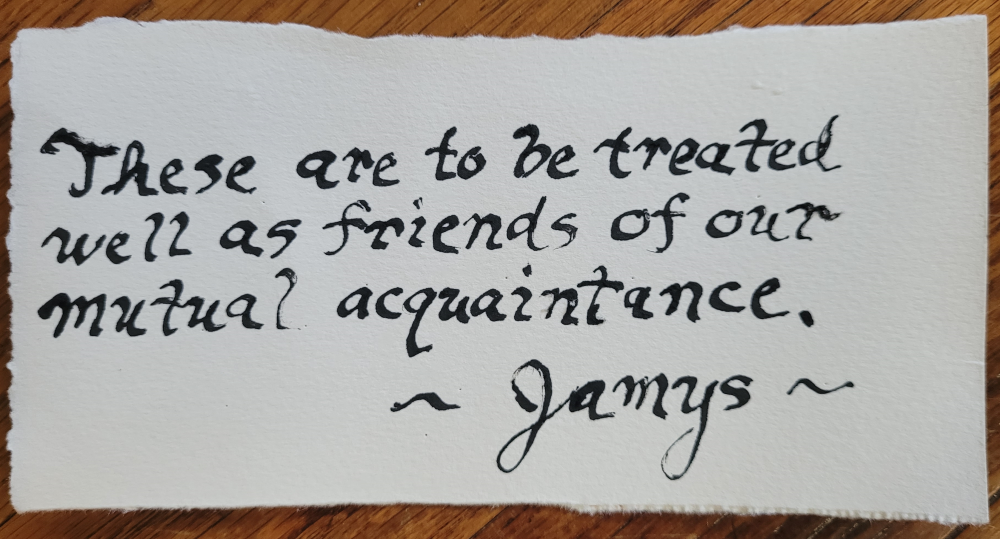 These are to be treated
well as friends of our
mutual acquaintance.
~ Jamys ~